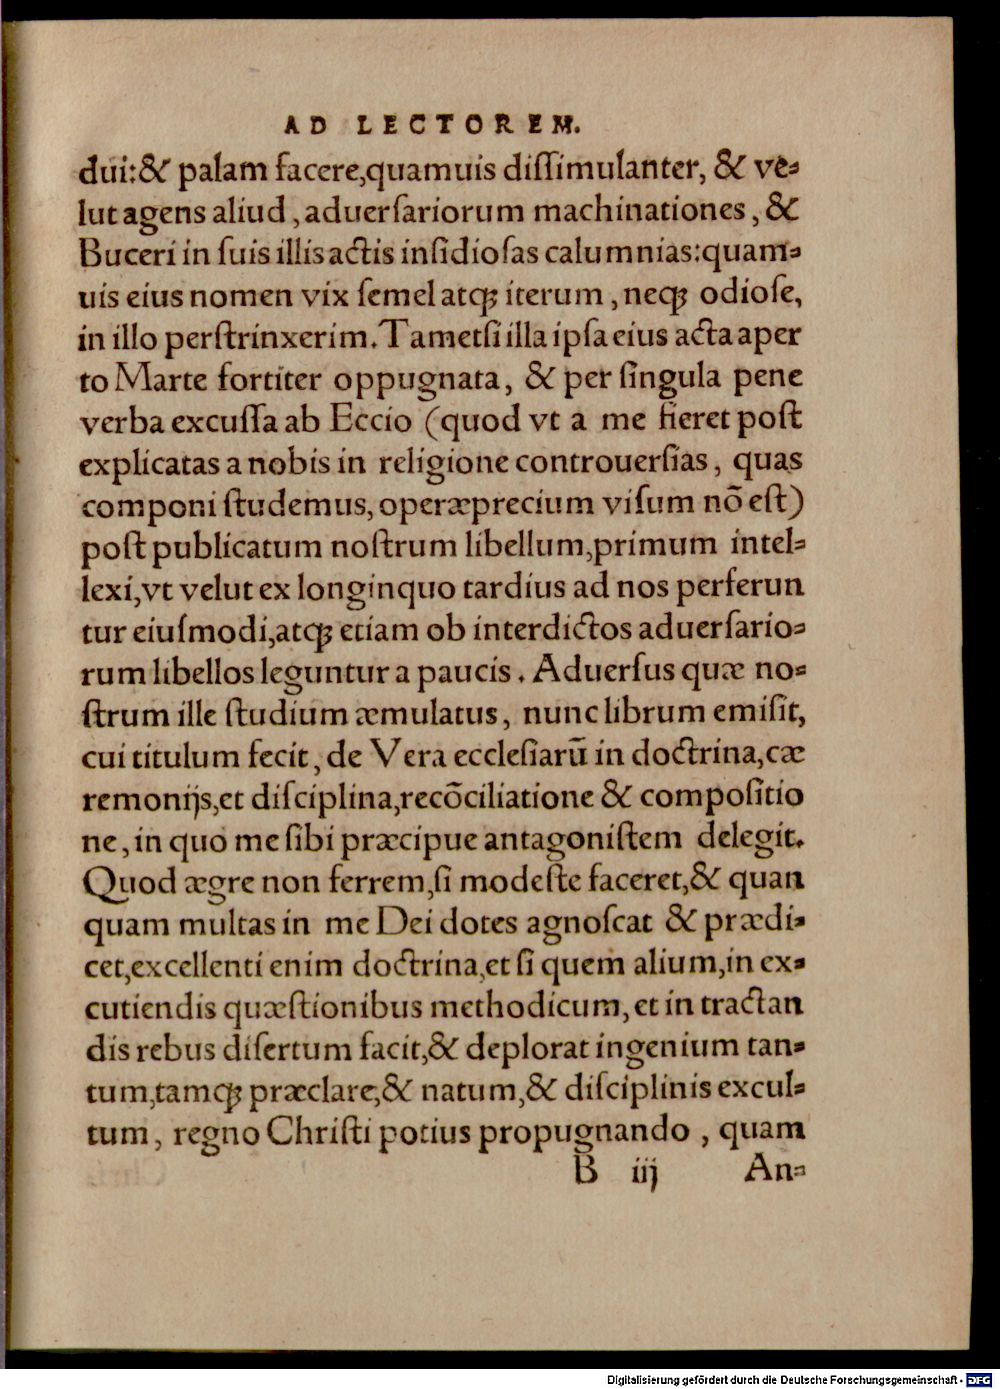 AD LECTOREM.
dui:& palam facere,quamuis diſſimulanter, & ve-
lut agens aliud, aduerſariorum machinationes, &
Buceri in ſuis illis actis inſidioſas calumnias:quam-
uis eius nomen vix ſemel atq́; iterum, neq́; odioſe,
in illo perſtrinxerim. Tametſi illa ipſa eius acta aper
to Marte fortiter oppugnata, & per ſingula pene
verba excuſſa ab Eccio (quod vt a me fieret poſt
explicatas a nobis in religione controuerſias, quas
componi ſtudemus, operæprecium viſum nõ eſt)
poſt publicatum noſtrum libellum,primum intel-
lexi,vt velut ex longinquo tardius ad nos perferun
tur eiuſmodi,atq́; etiam ob interdictos aduerſario-
rum libellos leguntur a paucis. Aduerſus quæ no-
ſtrum ille ſtudium æmulatus, nunc librum emiſit,
cui titulum fecit, de Vera eccleſiarũ in doctrina,cæ
remonijs,et diſciplina,recõciliatione & compoſitio
ne, in quo me ſibi præcipue antagoniſtem delegit.
Quod ægre non ferrem,ſi modeſte faceret,& quan
quam multas in me Dei dotes agnoſcat & prædi-
cet,excellenti enim doctrina,et ſi quem alium,in ex-
cutiendis quæſtionibus methodicum, et in tractan
dis rebus diſertum facit,& deplorat ingenium tan-
tum,tamq́; præclare,& natum,& diſciplinis excul-
tum, regno Chriſti potius propugnando, quam
B iij An-
Digitalisierung gefördert durch die Deutsche Forschungsgemeinschaft - DFG